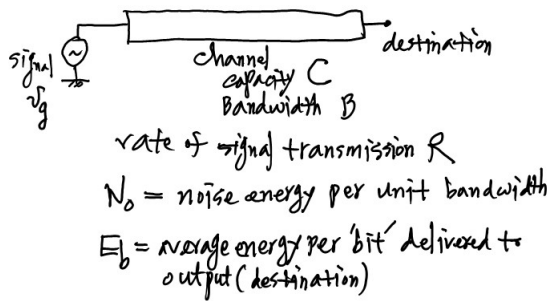 destination
signal
Vg
channel
capacity C
Bandwidth B
rate of signal transmission R
N₀ = noise energy per unit bandwidth
E_b = average energy per 'bit' delivered to
output (destination)